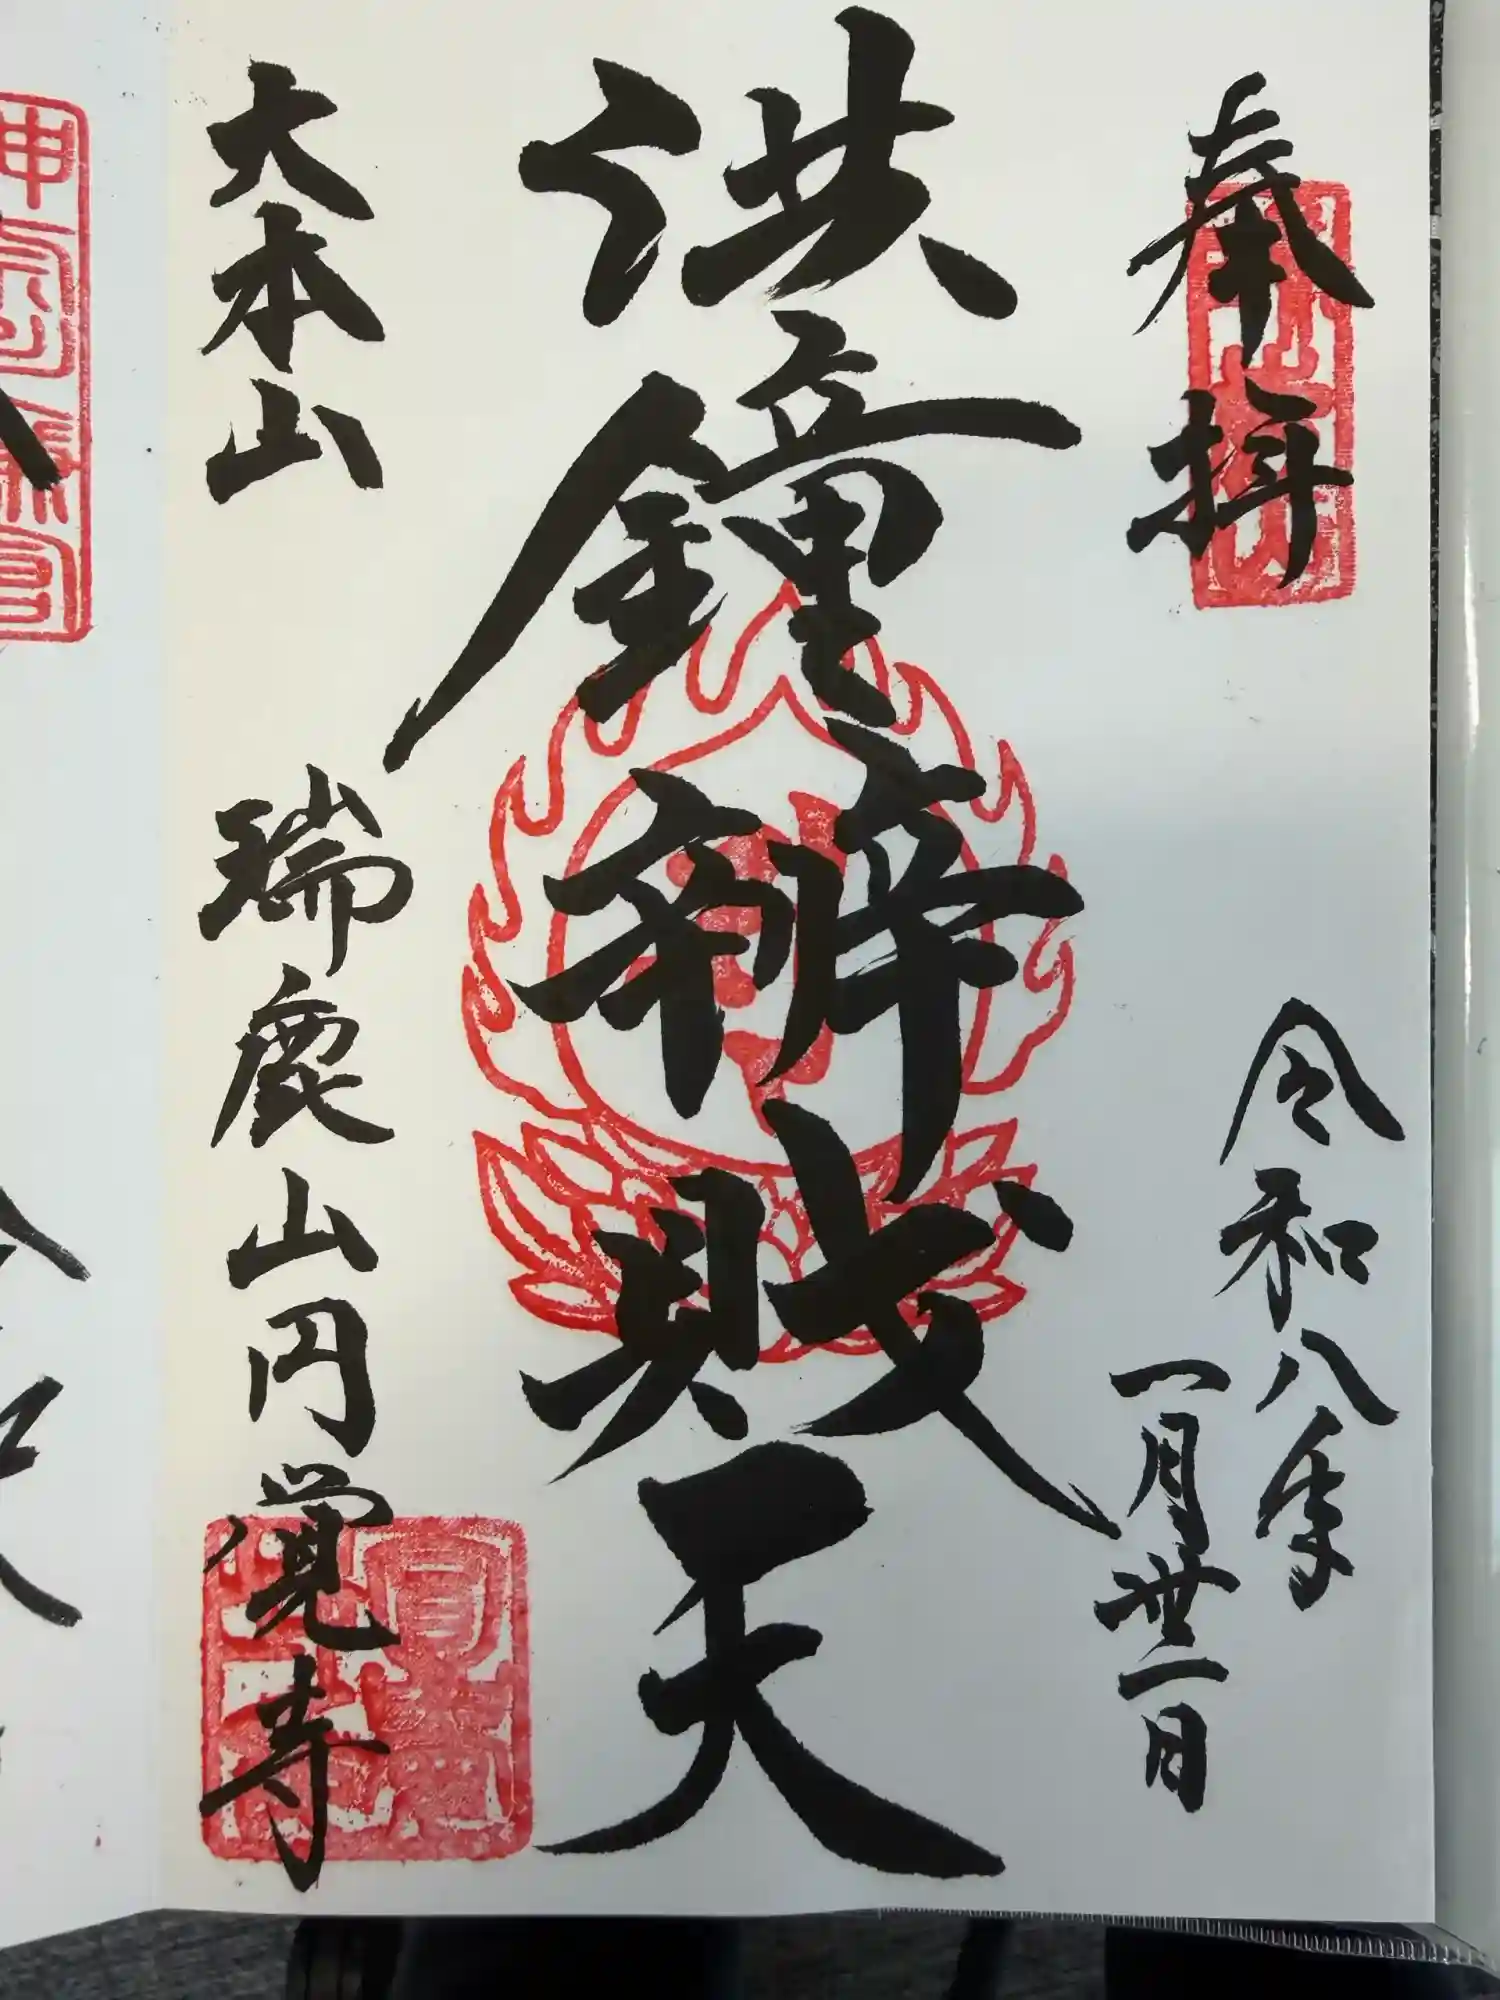 奉拝
令和八年
一月丗一日
洪鐘辨財天
大本山
瑞鹿山円覚寺